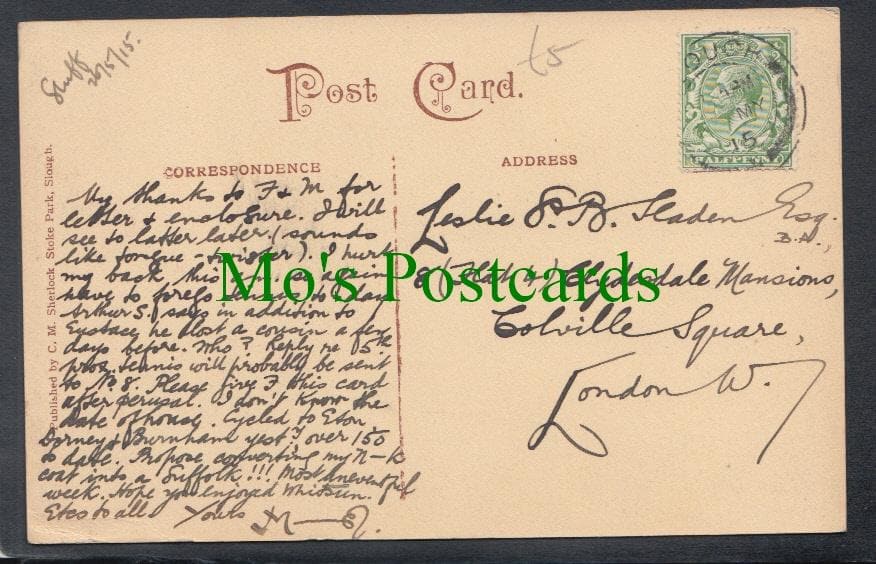 26/5/15.
£5
Post Card.
OUGH
MY
15
HALFPENNY
CORRESPONDENCE
ADDRESS
Published by C. M. Sherlock, Stoke Park, Slough.
My thanks to F & M for
letter & enclosure. I will
see to latter later (sounds
like tongue-twister). I hurt
my back this
have to today
Arthur S. says in addition to
Eustace he lost a cousin a few
days before. Who? Reply re 15th
prox. tennis will probably be sent
to No 8. Please give F this card
after perusal. I don't know the
date of house. Cycled to Eton
Dorney & Burnham yesty over 150
to date. Propose converting my N-k
coat into a Suffolk!!! Most uneventful
week. Hope you enjoyed Whitsun.
Etcs to all Yours
Leslie S. B. Sladen Esq.
B.A.,
8 Clydesdale Mansions,
Colville Square,
London W.
Mo's Postcards